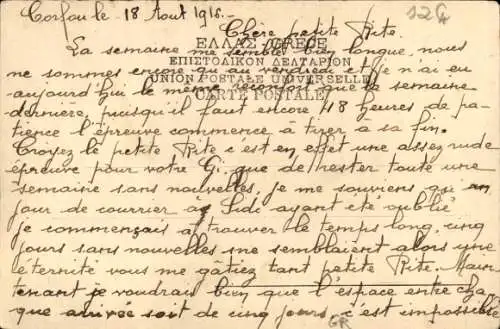 Corfou le 18 Aout 1916.
126
Chère petite Rite.
La semaine me semble bien longue, nous
ΕΛΛΑΣ-GRÈCE
ne sommes encore qu'au vendredi et je n'ai eu
ΕΠΙΣΤΟΛΙΚΟΝ ΔΕΛΤΑΡΙΟΝ
UNION POSTALE UNIVERSELLE
aujourd'hui le même réconfort que la semaine
CARTE POSTALE
dernière, puisqu'il faut encore 48 heures de pa-
tience l'épreuve commence à tirer à sa fin.
Croyez le petite Rite c'est en effet une assez rude
épreuve pour votre Gi. que de rester toute une
semaine sans nouvelles, je me souviens qu'un
jour de courrier à Sidi ayant été oublié
je commençais à trouver le temps long, cinq
jours sans nouvelles me semblaient alors une
éternité vous me gâtiez tant petite Rite. Main-
tenant je voudrais bien que l'espace entre cha-
que arrivée soit de cinq jours c'est impossible
GR